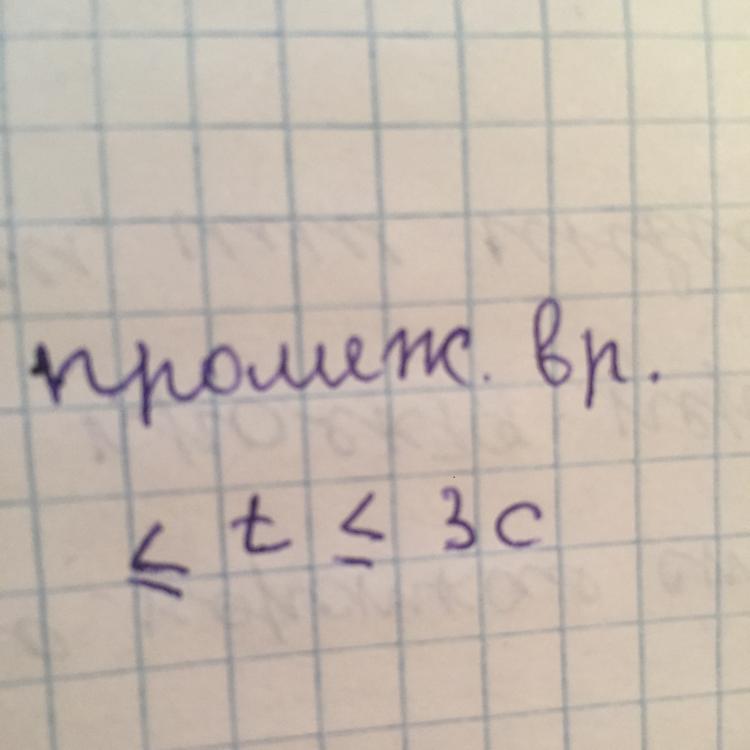 промеж. вр.
≤ t ≤ 3 с